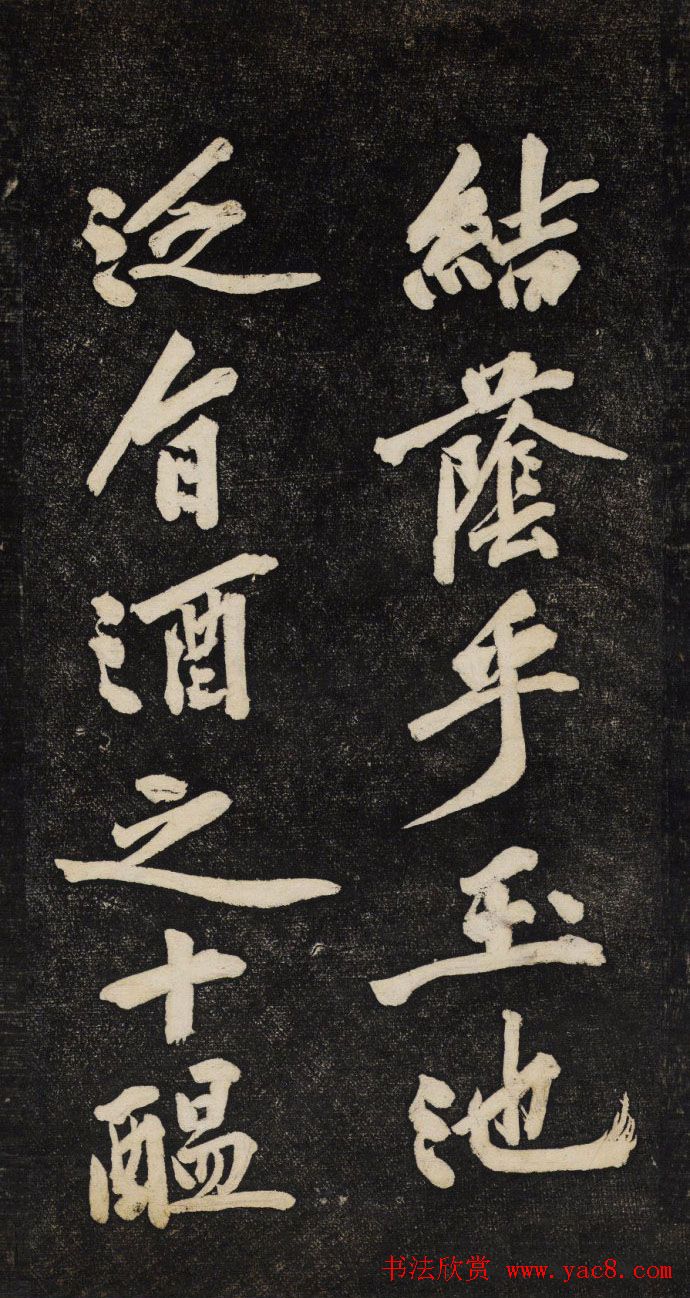 結蔭乎玉池
泛旨酒之十醖
书法欣赏 www.yac8.com